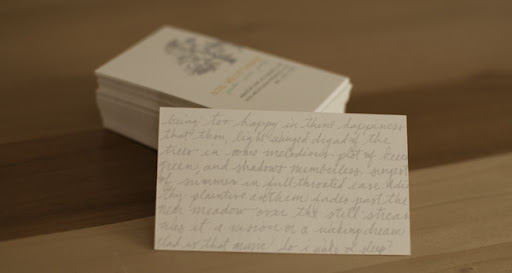 being too happy in thine happiness
that thou, light winged dryad of the
trees in some melodious plot of beech
green, and shadows numberless, singest
of summer in full-throated ease. Adieu
thy plaintive anthem fades past the
near meadow over the still stream
was it a vision or a waking dream
fled is that music: Do i wake or sleep?